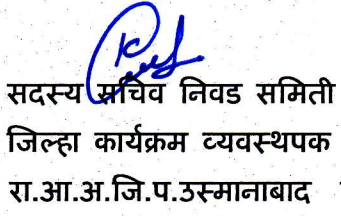 सदस्य सचिव निवड समिती
जिल्हा कार्यक्रम व्यवस्थापक
रा.आ.अ.जि.प.उस्मानाबाद